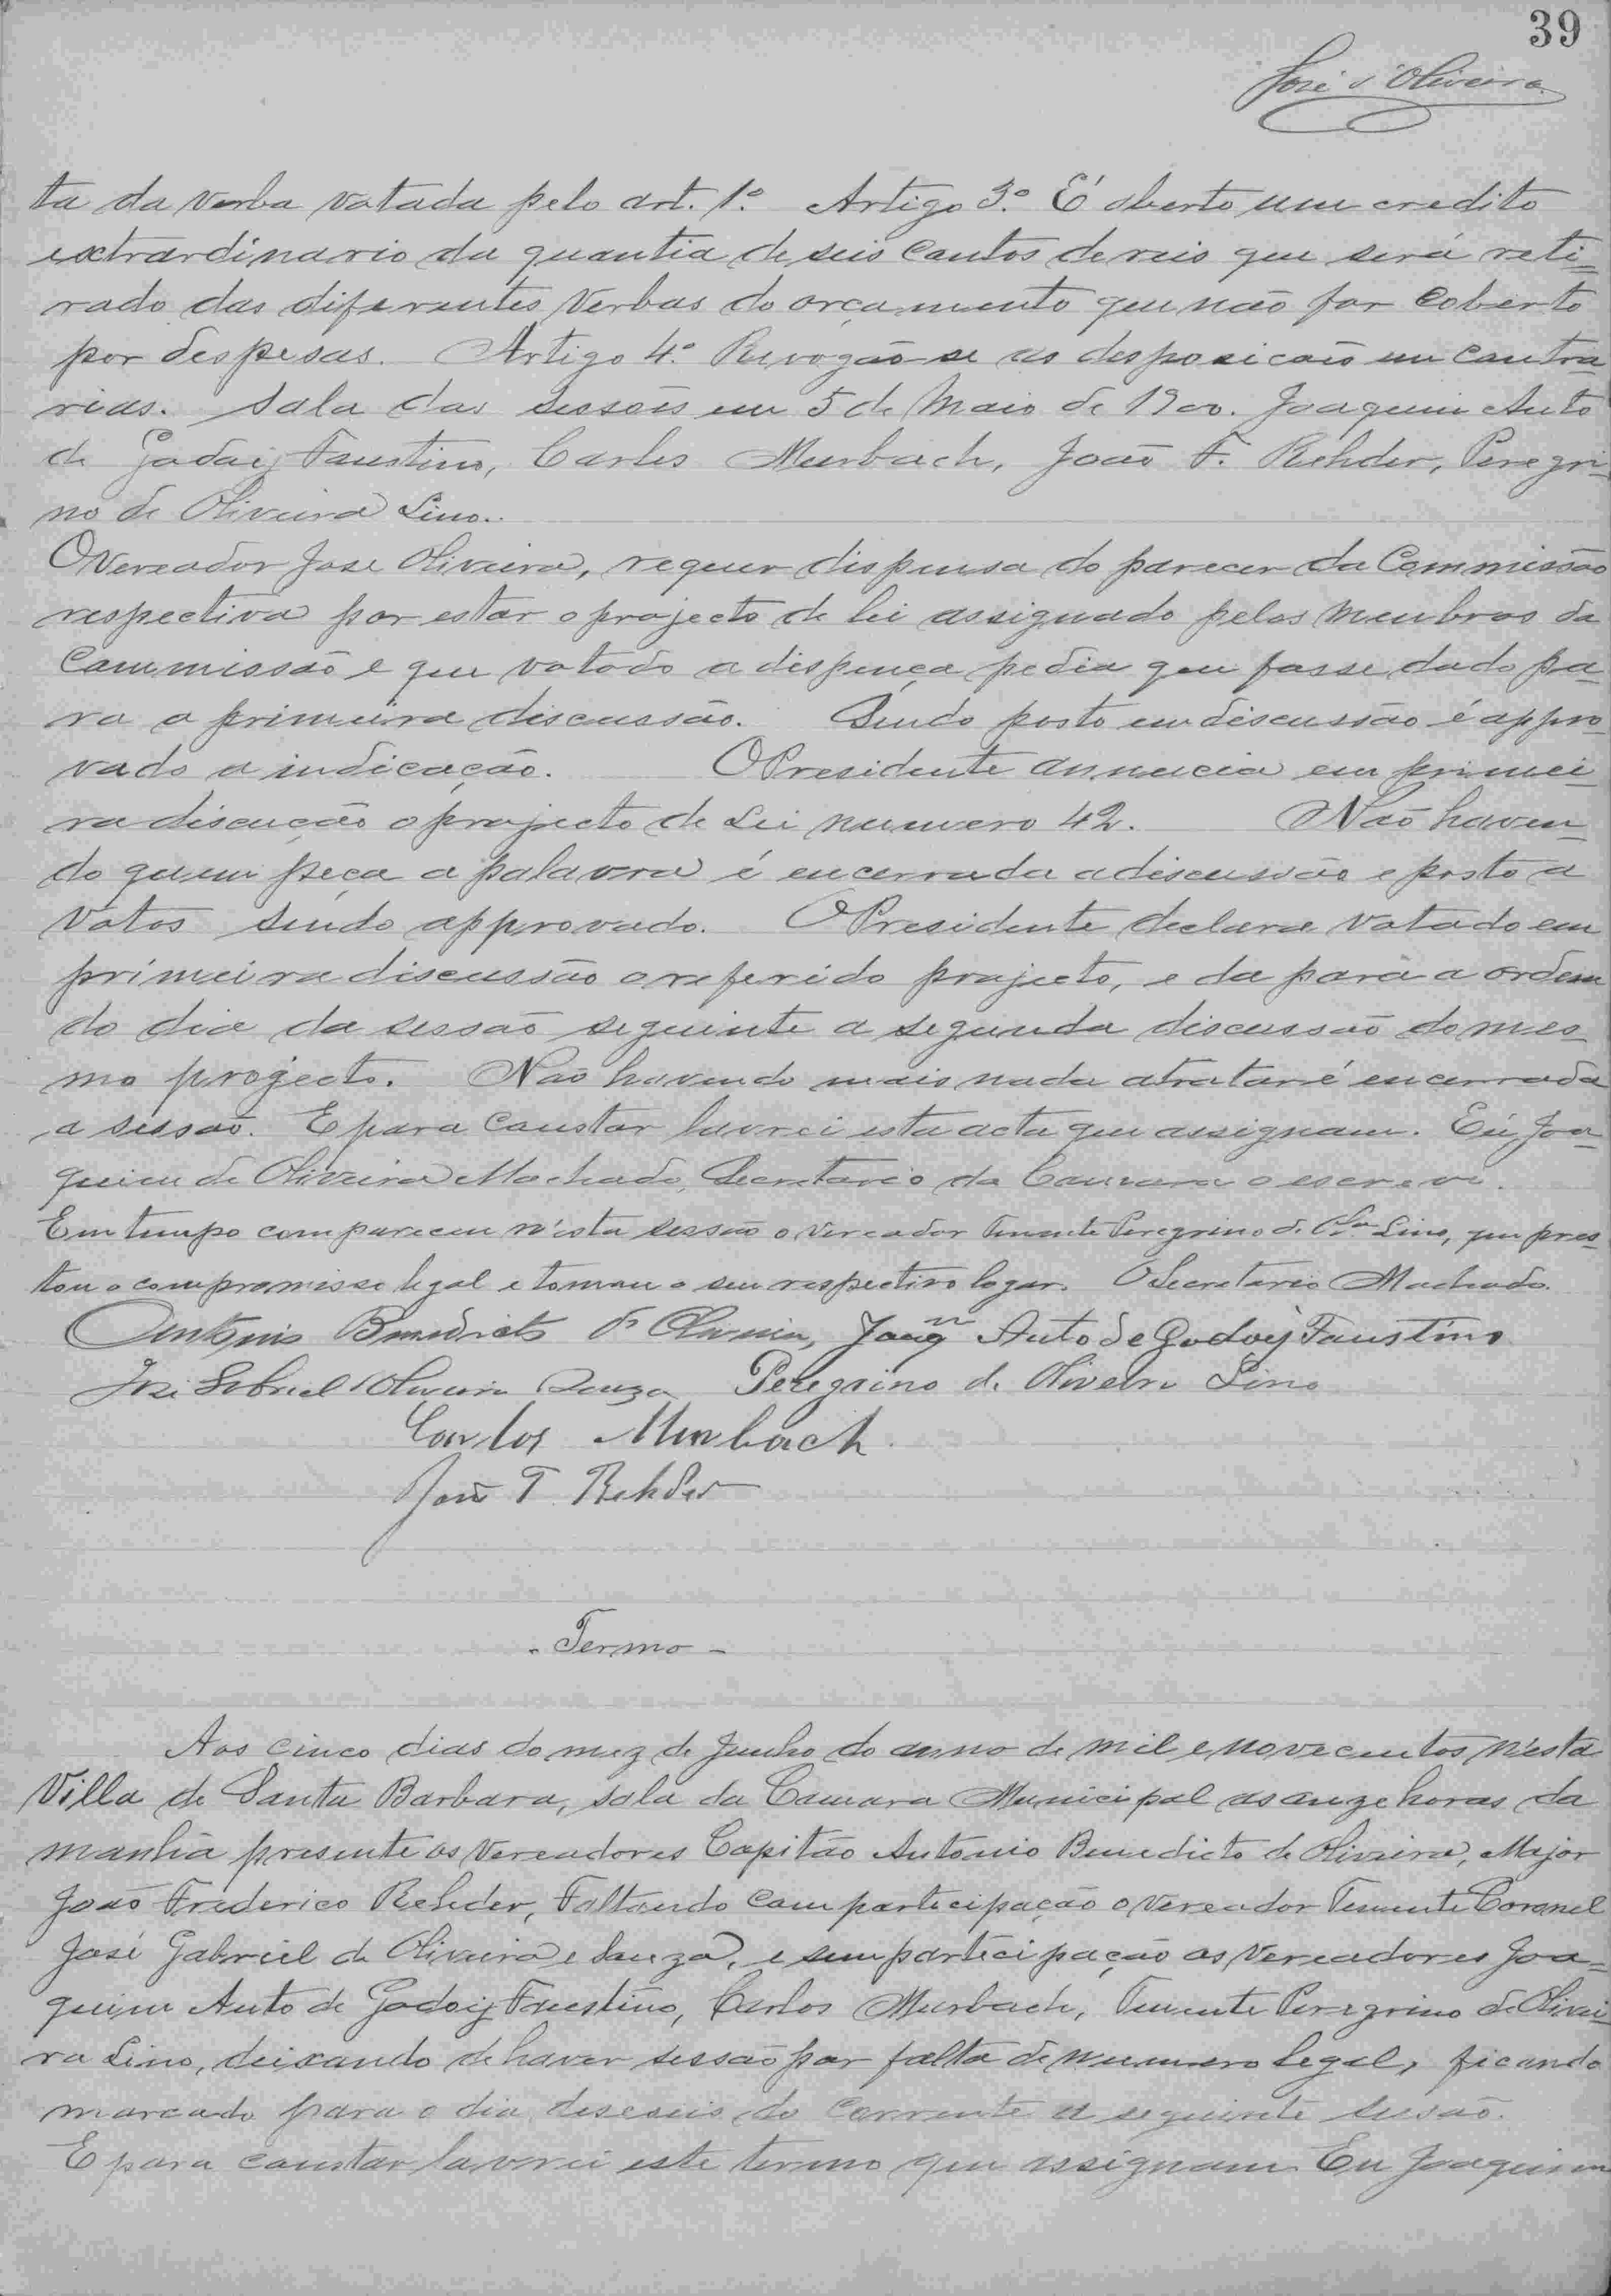 39
José d'Oliveira
ta da verba votada pelo art. 1º. Artigo 3º. É aberto um credito
extrardinario da quantia de seis Contos de reis que será reti=
rado das diferentes Verbas do orçamento que não for Coberto
por despesas. Artigo 4º. Revogão-se as desposicois em Contra
rias. Sala das Sessois em 5 de Maio de 1900. Joaquim Auto
de Godoij Faustino, Carlos Murbach, João F. Rehder, Peregri-
no de Oliveira Lino.
O Vereador Jose Oliveira, requer dispensa do parecer da Commissão
respectiva por estar o projecto de lei assignado pelos Membros da
Commissão e que votado a dispença pedia que fosse dado pa-
ra a primeira discussão. Sendo posto em discussão é appro-
vado a indicação. O Presidente annuncia em primei-
ra discução o projecto de Lei numero 42. Não haven-
do quem peça a palavra é encerrada a discussão e posto a
Votos sendo approvado. O Presidente declara Votado em
primeira discussão o referido projecto, e da para a ordem
do dia da sessão seguinte a segunda discussão do mes-
mo projecto. Não havendo mais nada atratar é encerrada
a sessão. E para Constar lavrei esta acta que assignam. Eu, Joa-
quim de Oliveira Machado, Secretario da Camara o escrevi.
Em tempo compareceu n'esta sessão o Vereador Tenente Peregrino d. Olra Lino, que pres-
tou o compromisso legal e tomou o seu respectivo logar. O Secretario Machado.
Antonio Benedicto d'Oliveira, Joaqm Auto de Godoij Faustino
José Gabriel d'Oliveira Souza Peregrino de Oliveira Lino
Carlos Murbach
João F Rehder
- Termo -
Aos cinco dias do mez de Junho do anno de mil e novecentos n'esta
Villa de Santa Barbara, sala da Camara Municipal as onze horas da
manhã presente os Vereadores Capitão Antonio Benedicto de Oliveira, Major
João Frederico Rehder, Faltando Com participação o Vereador Tenente Coronel
José Gabriel de Oliveira e Souza, e sem participação os Vereadores Joa=
quim Auto de Godoij Faustino, Carlos Murbach, Tenente Peregrino de Olivei-
ra Lino, deixando de haver sessão por falta de numero legal, ficando
marcado para o dia deseseis do Corrente a seguinte sessão.
E para constar lavrei este termo que assignam. Eu Joaquim